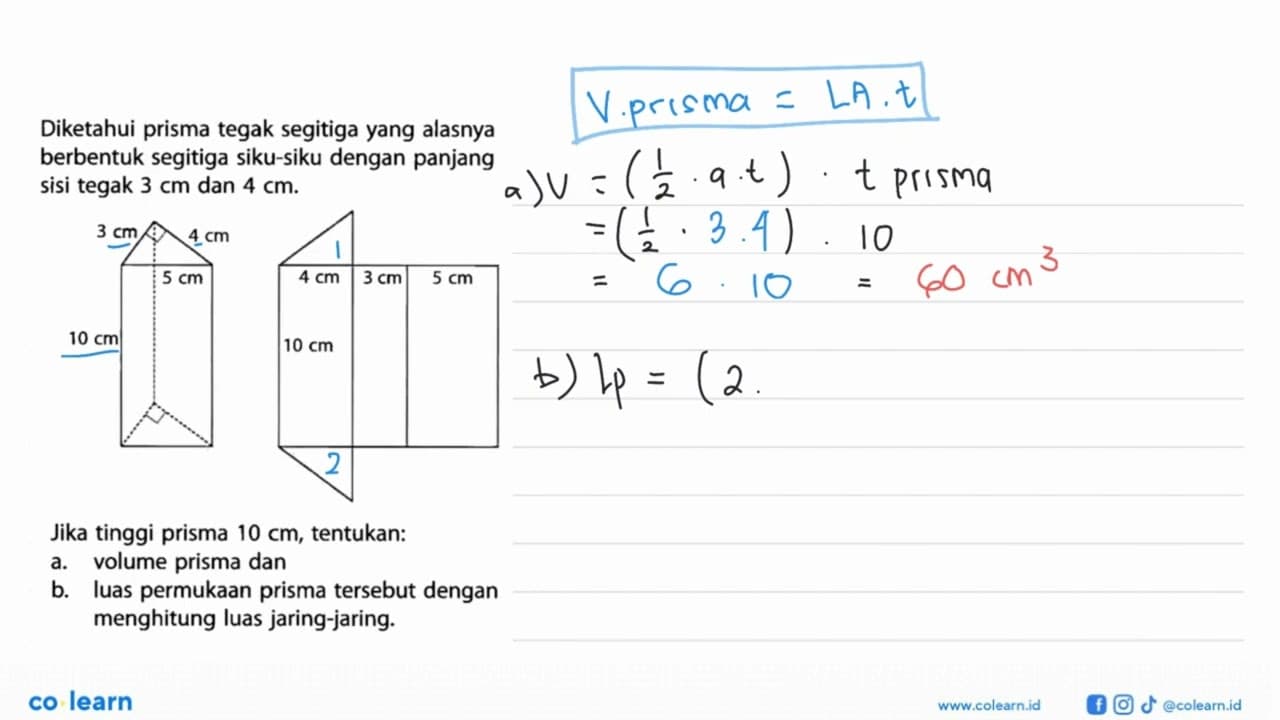 Diketahui prisma tegak segitiga yang alasnya
berbentuk segitiga siku-siku dengan panjang
sisi tegak 3 cm dan 4 cm.
3 cm
4 cm
5 cm
10 cm
1
4 cm 3 cm 5 cm
10 cm
2
Jika tinggi prisma 10 cm, tentukan:
a. volume prisma dan
b. luas permukaan prisma tersebut dengan
menghitung luas jaring-jaring.
V.prisma = LA.t
a) V = (1/2 . a.t) . t prisma
= (1/2 . 3.4) . 10
= 6 . 10 = 60 cm³
b) Lp = (2.
co·learn
www.colearn.id
@colearn.id